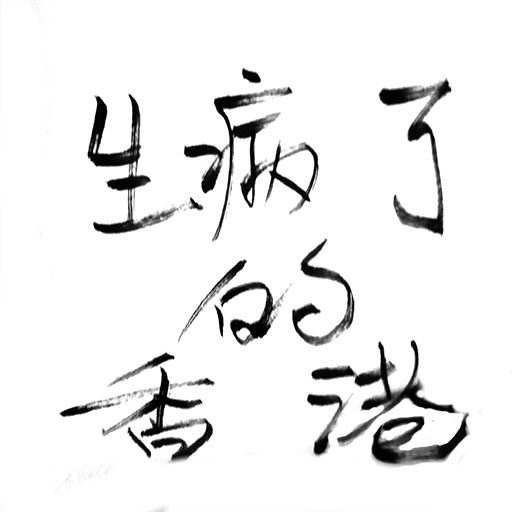 生病了
的
香港